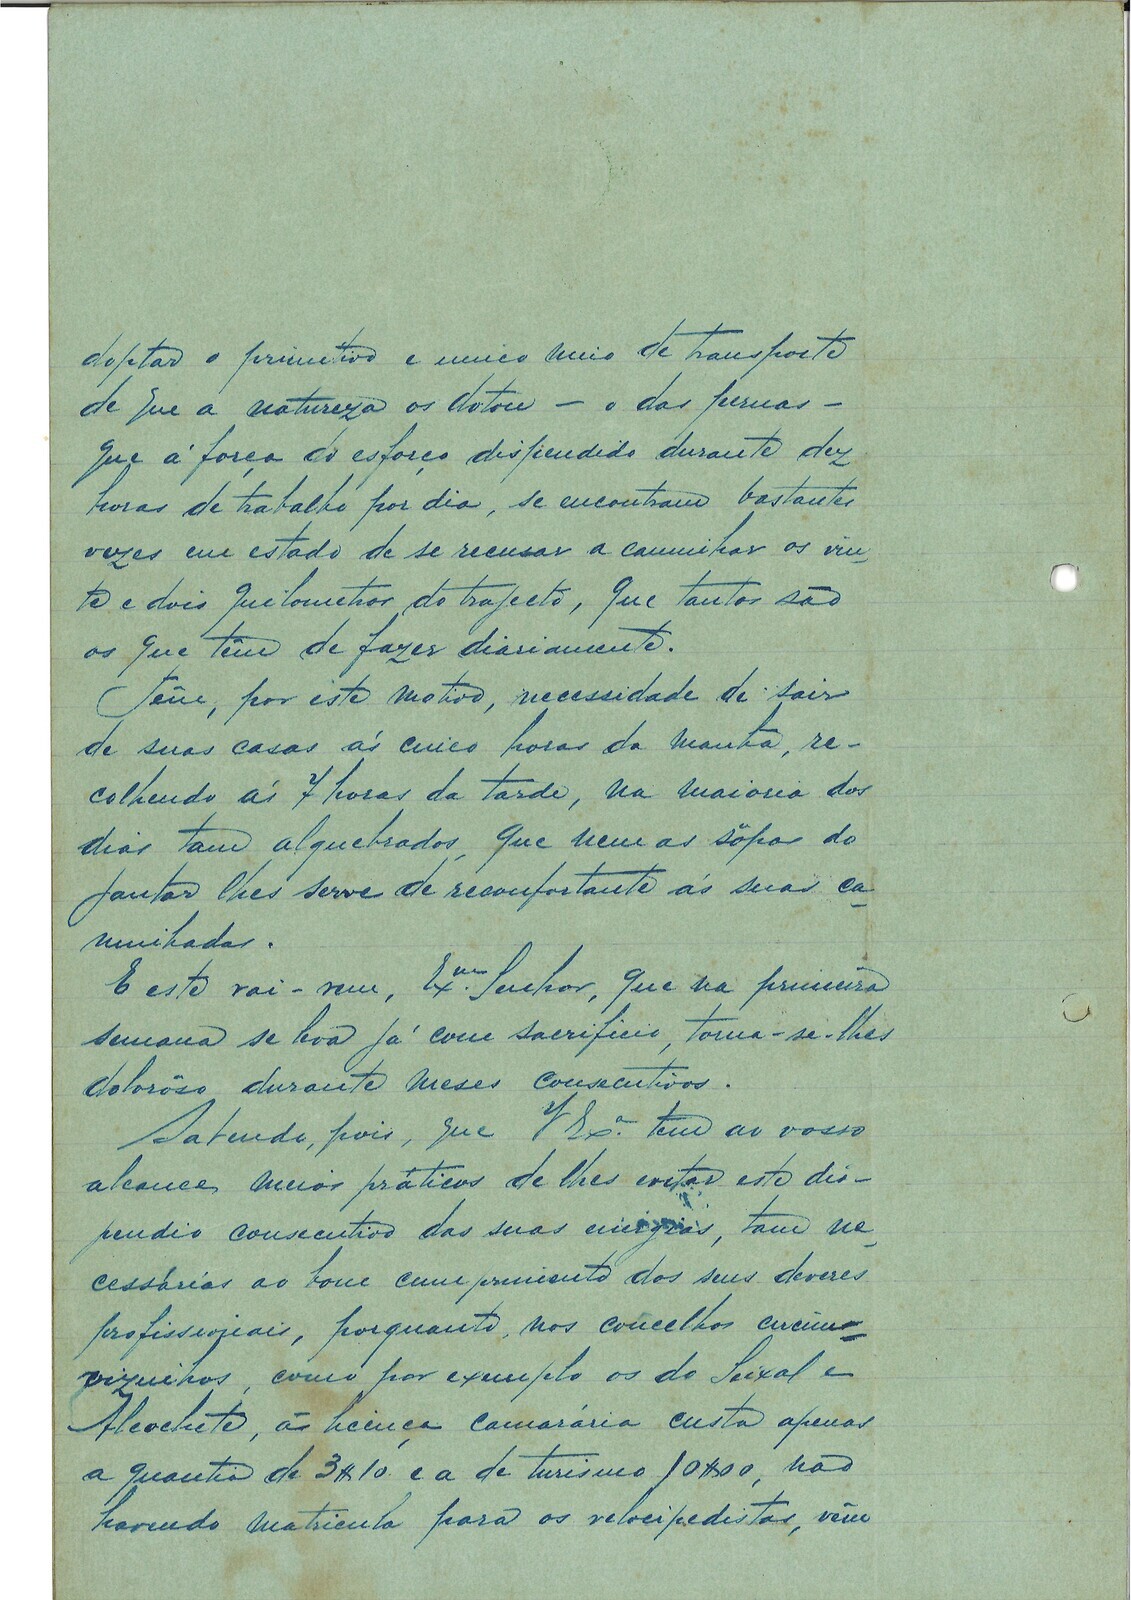 doptar o primitivo e unico meio de transporte
de que a natureza os dotou — o das pernas —
que á força do esforço dispendido durante dez
horas de trabalho por dia, se encontram bastantes
vezes em estado de se recusar a caminhar os vin-
te e dois quilometros do trajecto, que tantos são
os que têm de fazer diariamente.
Têm, por êste motivo, necessidade de sair
de suas casas ás cinco horas da manhã, re-
colhendo ás 7 horas da tarde, na maioria dos
dias tam alquebrados, que nem as sôpas do
jantar lhes serve de reconfortante ás suas ca-
minhadas.
E este vai-vem, Exmo. Senhor, que na primeira
semana se leva já com sacrificio, torna-se-lhes
dolorôso durante meses consecutivos.
Sabendo, pois, que V Exa. tem ao vosso
alcance, meios práticos de lhes evitar este dis-
pendio consecutivo das suas energias, tam ne-
cessárias ao bom cumprimento dos seus deveres
profissionais, porquanto, nos concelhos circum-
vizinhos, como por exemplo os do Seixal e
Alcochete, a licença camarária custa apenas
a quantia de 3$10 e a de turismo 10$00, não
havendo matricula para os velocipedistas, vêm